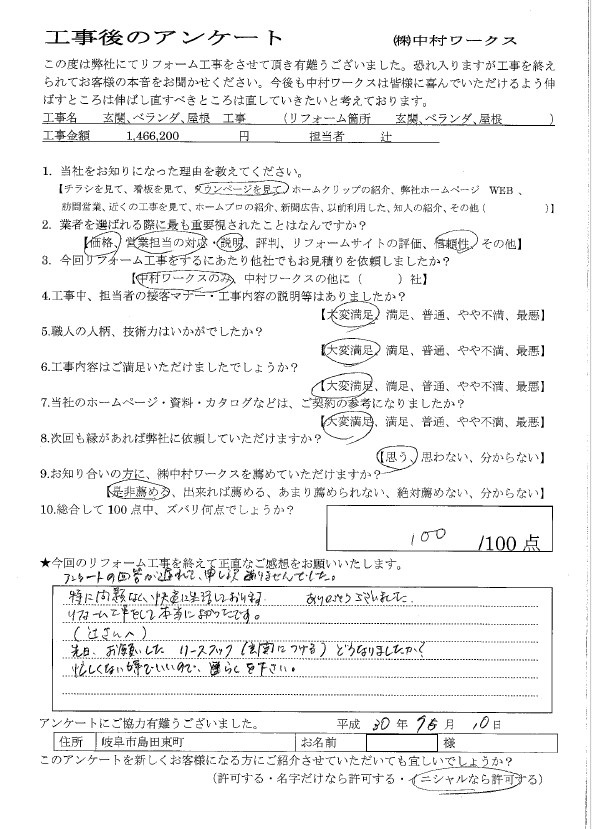 工事後のアンケート ㈱中村ワークス
この度は弊社にてリフォーム工事をさせて頂き有難うございました。恐れ入りますが工事を終え
られてお客様の本音をお聞かせください。今後も中村ワークスは皆様に喜んでいただけるよう伸
ばすところは伸ばし直すべきところは直していきたいと考えております。
工事名 玄関、ベランダ、屋根 工事 (リフォーム箇所 玄関、ベランダ、屋根 )
工事金額 1,466,200 円 担当者 辻
1. 当社をお知りになった理由を教えてください。
【チラシを見て、看板を見て、タウンページを見て、ホームクリップの紹介、弊社ホームページ WEB、
訪問営業、近くの工事を見て、ホームプロの紹介、新聞広告、以前利用した、知人の紹介、その他( )】
2. 業者を選ばれる際に最も重要視されたことはなんですか?
【価格、営業担当の対応・説明、評判、リフォームサイトの評価、信頼性、その他】
3. 今回リフォーム工事をするにあたり他社でもお見積りを依頼しましたか?
【中村ワークスのみ、中村ワークスの他に( )社】
4.工事中、担当者の接客マナー・工事内容の説明等はありましたか?
【大変満足、満足、普通、やや不満、最悪】
5.職人の人柄、技術力はいかがでしたか?
【大変満足、満足、普通、やや不満、最悪】
6.工事内容はご満足いただけましたでしょうか?
【大変満足、満足、普通、やや不満、最悪】
7.当社のホームページ・資料・カタログなどは、ご契約の参考になりましたか?
【大変満足、満足、普通、やや不満、最悪】
8.次回も縁があれば弊社に依頼していただけますか?
【思う、思わない、分からない】
9.お知り合いの方に、㈱中村ワークスを薦めていただけますか?
【是非薦める、出来れば薦める、あまり薦められない、絶対薦めない、分からない】
10.総合して100点中、ズバリ何点でしょうか?
100 /100点
★今回のリフォーム工事を終えて正直なご感想をお願いいたします。
アンケートの回答が遅れて、申し訳ありませんでした。
特に問題なく、快適に生活しております。 ありがとうございました。
リフォーム工事をして本当によかったです。
(辻さんへ)
先日、お願いした リースフック(玄関につける) どうなりましたか?
忙しくない時でいいので、 を下さい。
アンケートにご協力有難うございました。 平成 30 年 月 10 日
住所 岐阜市島田東町 お名前 様
このアンケートを新しくお客様になる方にご紹介させていただいても宜しいでしょうか?
(許可する・名字だけなら許可する・イニシャルなら許可する)